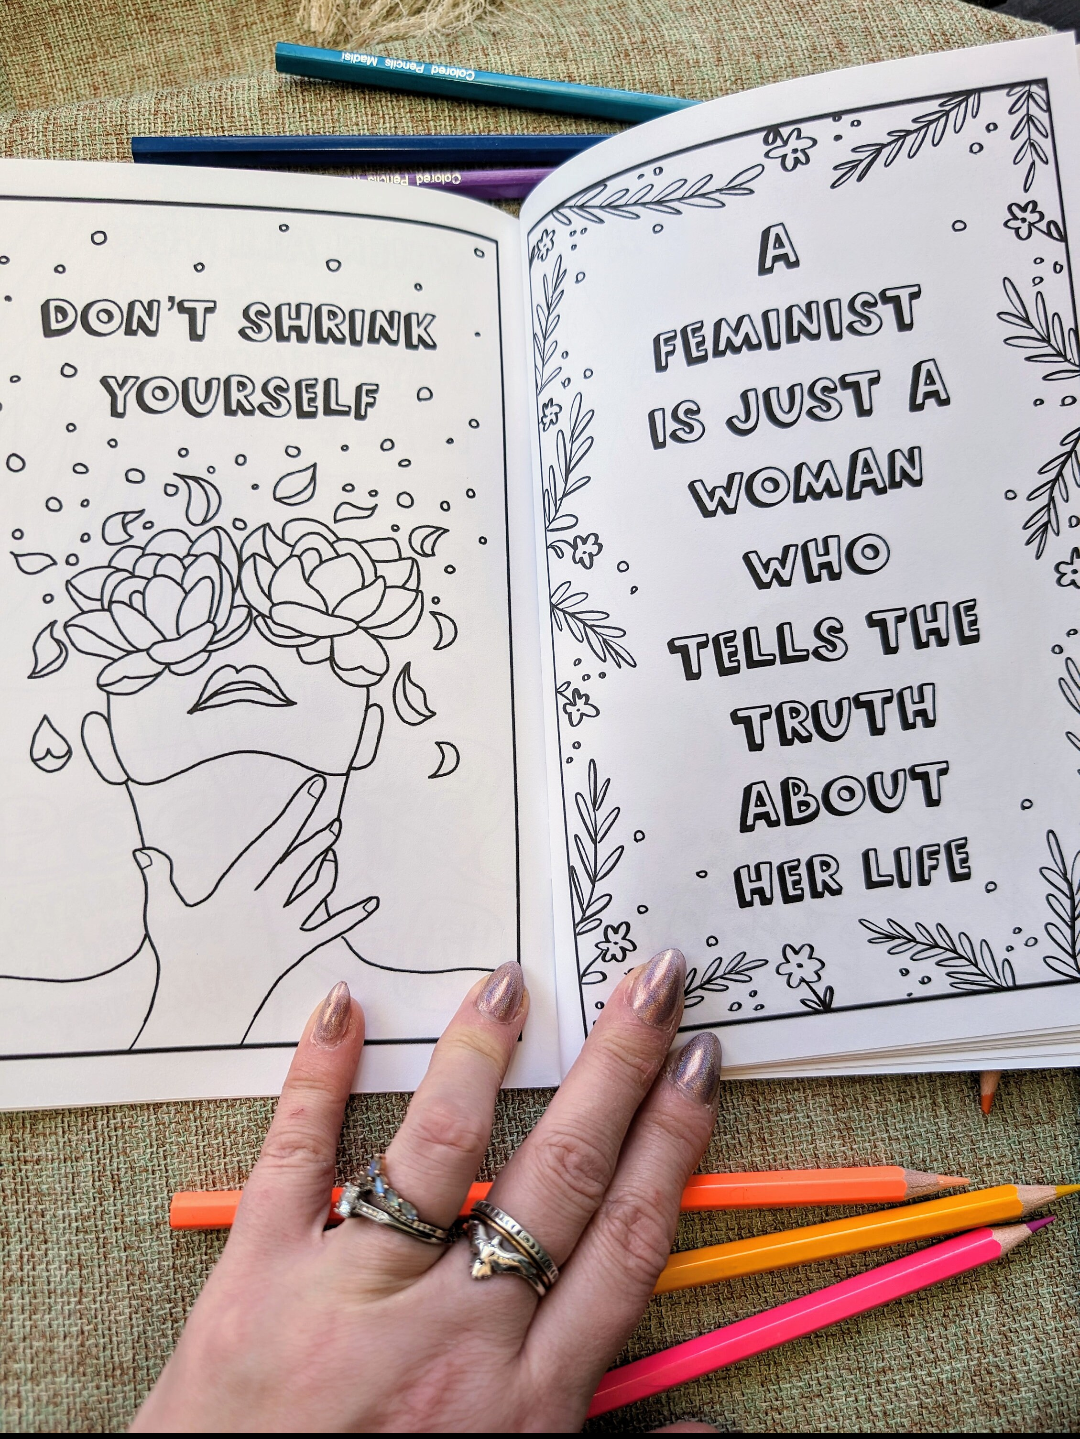 Colored Pencils Madisi
Colored Pencils
DON'T SHRINK
YOURSELF
A
FEMINIST
IS JUST A
WOMAN
WHO
TELLS THE
TRUTH
ABOUT
HER LIFE